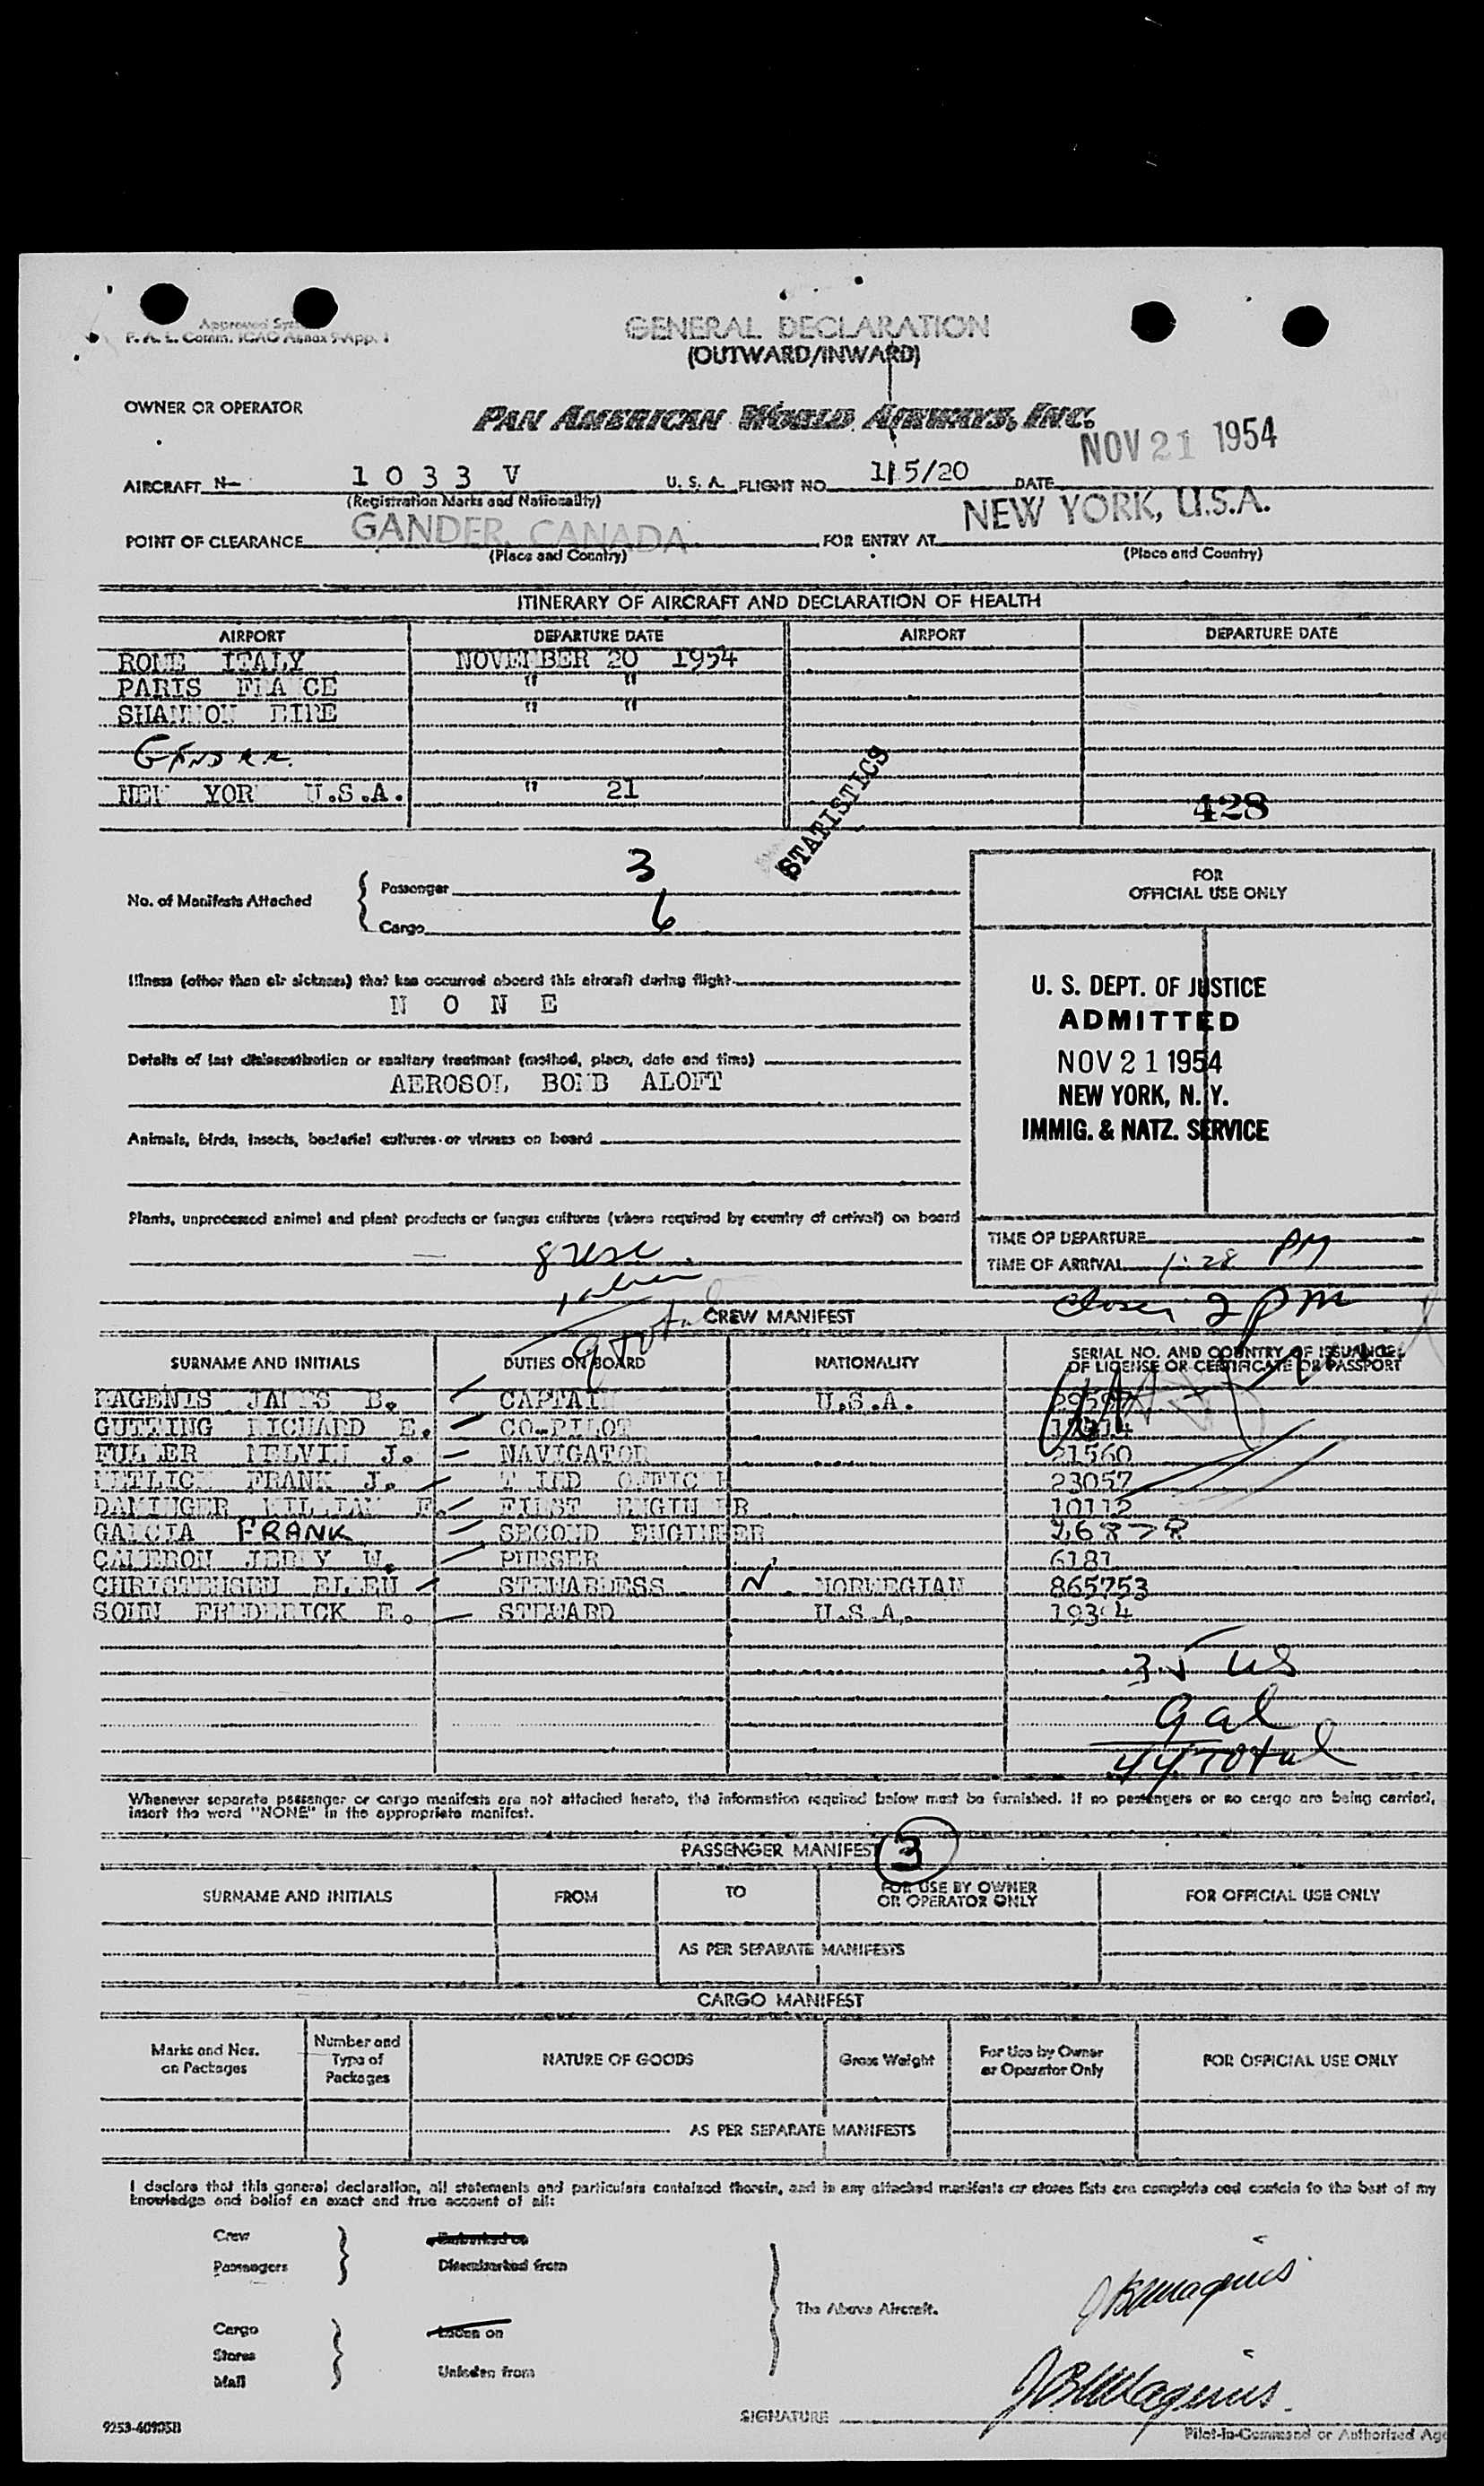 Approved
F. A. L. Comm. ICAO Annex 9-App. 1
GENERAL DECLARATION
(OUTWARD/INWARD)
OWNER OR OPERATOR
PAN AMERICAN WORLD AIRWAYS, INC.
NOV 21 1954
AIRCRAFT N- 1 0 3 3 V U. S. A. FLIGHT NO. 115/20 DATE
(Registration Marks and Nationality)
NEW YORK, U.S.A.
POINT OF CLEARANCE GANDER, CANADA FOR ENTRY AT
(Place and Country) (Place and Country)
ITINERARY OF AIRCRAFT AND DECLARATION OF HEALTH
AIRPORT DEPARTURE DATE AIRPORT DEPARTURE DATE
ROME ITALY NOVEMBER 20 1954
PARIS FRA CE " "
SHANNON EIRE " "
GANDER
NEW YORK U.S.A. " 21
STATISTICS
428
No. of Manifests Attached
Passenger 3
Cargo 6
FOR
OFFICIAL USE ONLY
Illness (other than air sickness) that has occurred aboard this aircraft during flight
N O N E
Details of last disinsectization or sanitary treatment (method, place, date and time)
AEROSOL BOMB ALOFT
Animals, birds, insects, bacterial cultures or viruses on board
Plants, unprocessed animal and plant products or fungus cultures (where required by country of arrival) on board
U. S. DEPT. OF JUSTICE
ADMITTED
NOV 21 1954
NEW YORK, N. Y.
IMMIG. & NATZ. SERVICE
TIME OF DEPARTURE
TIME OF ARRIVAL 1:28 PM
2 pm
8 usc
1 alien
9 total
CREW MANIFEST
SURNAME AND INITIALS DUTIES ON BOARD NATIONALITY SERIAL NO. AND COUNTRY OF ISSUANCE OF LICENSE OR CERTIFICATE OR PASSPORT
MAGENIS JAMES B. CAPTAIN U.S.A.
GUTTING RICHARD E. CO-PILOT
FULLER MELVIN J. NAVIGATOR 21560
FRANK J. THIRD OFFICER 23057
DAMINGER WILLIAM F. FIRST ENGINEER 10112
GARCIA FRANK SECOND ENGINEER 26878
CAMERON JERRY W. PURSER 6181
CHRISTENSEN ELLEN STEWARDESS N NORWEGIAN 865753
SOHN FREDERICK E. STEWARD U.S.A.
35 US
9 al
44 Total
Whenever separate passenger or cargo manifests are not attached hereto, the information required below must be furnished. If no passengers or no cargo are being carried,
insert the word "NONE" in the appropriate manifest.
PASSENGER MANIFEST 3
SURNAME AND INITIALS FROM TO FOR USE BY OWNER OR OPERATOR ONLY FOR OFFICIAL USE ONLY
AS PER SEPARATE MANIFESTS
CARGO MANIFEST
Marks and Nos. on Packages Number and Type of Packages NATURE OF GOODS Gross Weight For Use by Owner or Operator Only FOR OFFICIAL USE ONLY
AS PER SEPARATE MANIFESTS
I declare that this general declaration, all statements and particulars contained therein, and in any attached manifests or stores lists are complete and contain to the best of my
knowledge and belief an exact and true account of all:
Crew Embarked on
Passengers Disembarked from
The Above Aircraft.
Cargo Laden on
Stores
Mail Unladen from
JBMagenis
JBMagenis
SIGNATURE
Pilot-in-Command or Authorized Age
9253-40905B